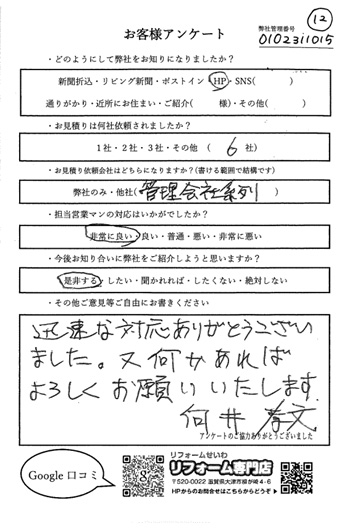 ⑫
お客様アンケート
弊社管理番号
0102311015
・どのようにして弊社をお知りになりましたか？
新聞折込・リビング新聞・ポストイン・HP・SNS(　　　)
通りがかり・近所にお住まい・ご紹介(　　様)・その他(　　　)
・お見積りは何社依頼されましたか？
1社・2社・3社・その他　(　6　社)
・お見積り依頼会社はどちらになりますか？(書ける範囲で結構です)
弊社のみ・他社(管理会社系列)
・担当営業マンの対応はいかがでしたか？
非常に良い・良い・普通・悪い・非常に悪い
・今後お知り合いに弊社をご紹介しようと思いますか？
是非する・したい・聞かれれば・したくない・絶対しない
・その他ご意見等ご自由にお書きください
迅速な対応ありがとうござい
ました。又何かあれば
よろしくお願いいたします
向井 孝文
アンケートのご協力ありがとうございました
Google口コミ
リフォームせいわ
リフォーム専門店
〒520-0022 滋賀県大津市柳が崎4-6
HPからのお問合せはこちらからどうぞ